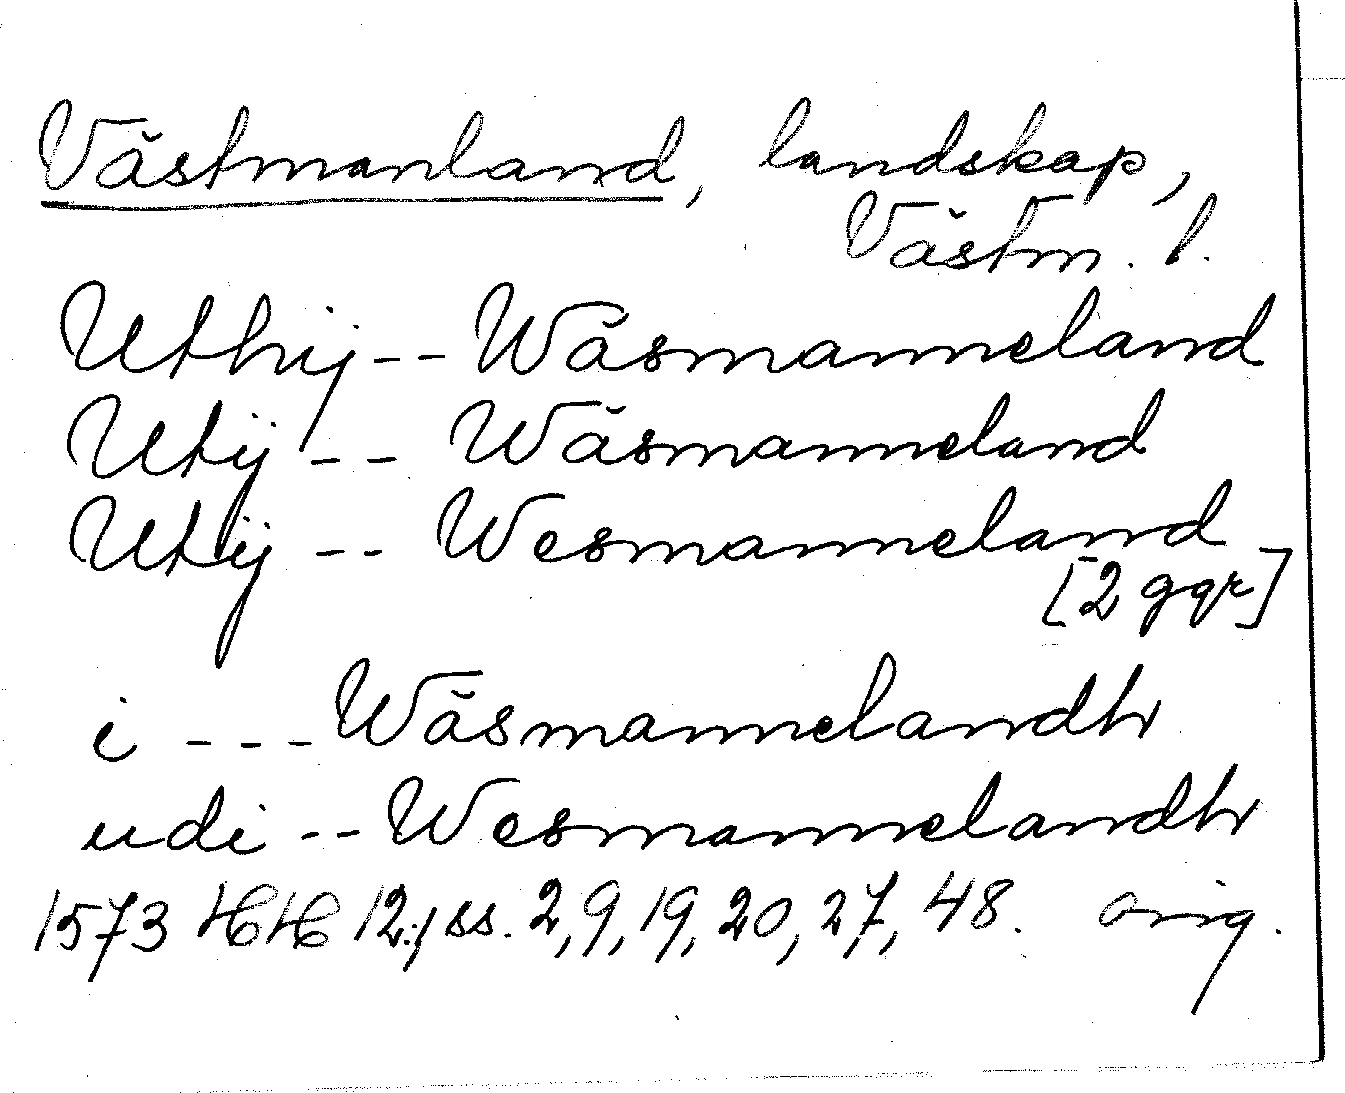 Västmanland, landskap,
Västm. l.
Uthij -- Wäsmanneland
Utij -- Wäsmanneland
Utij -- Wesmanneland
[2 ggr]
i --- Wäsmannelandh
udi -- Wesmannelandh
1573 HH 12:1 ss. 2, 9, 19, 20, 27, 48. orig.